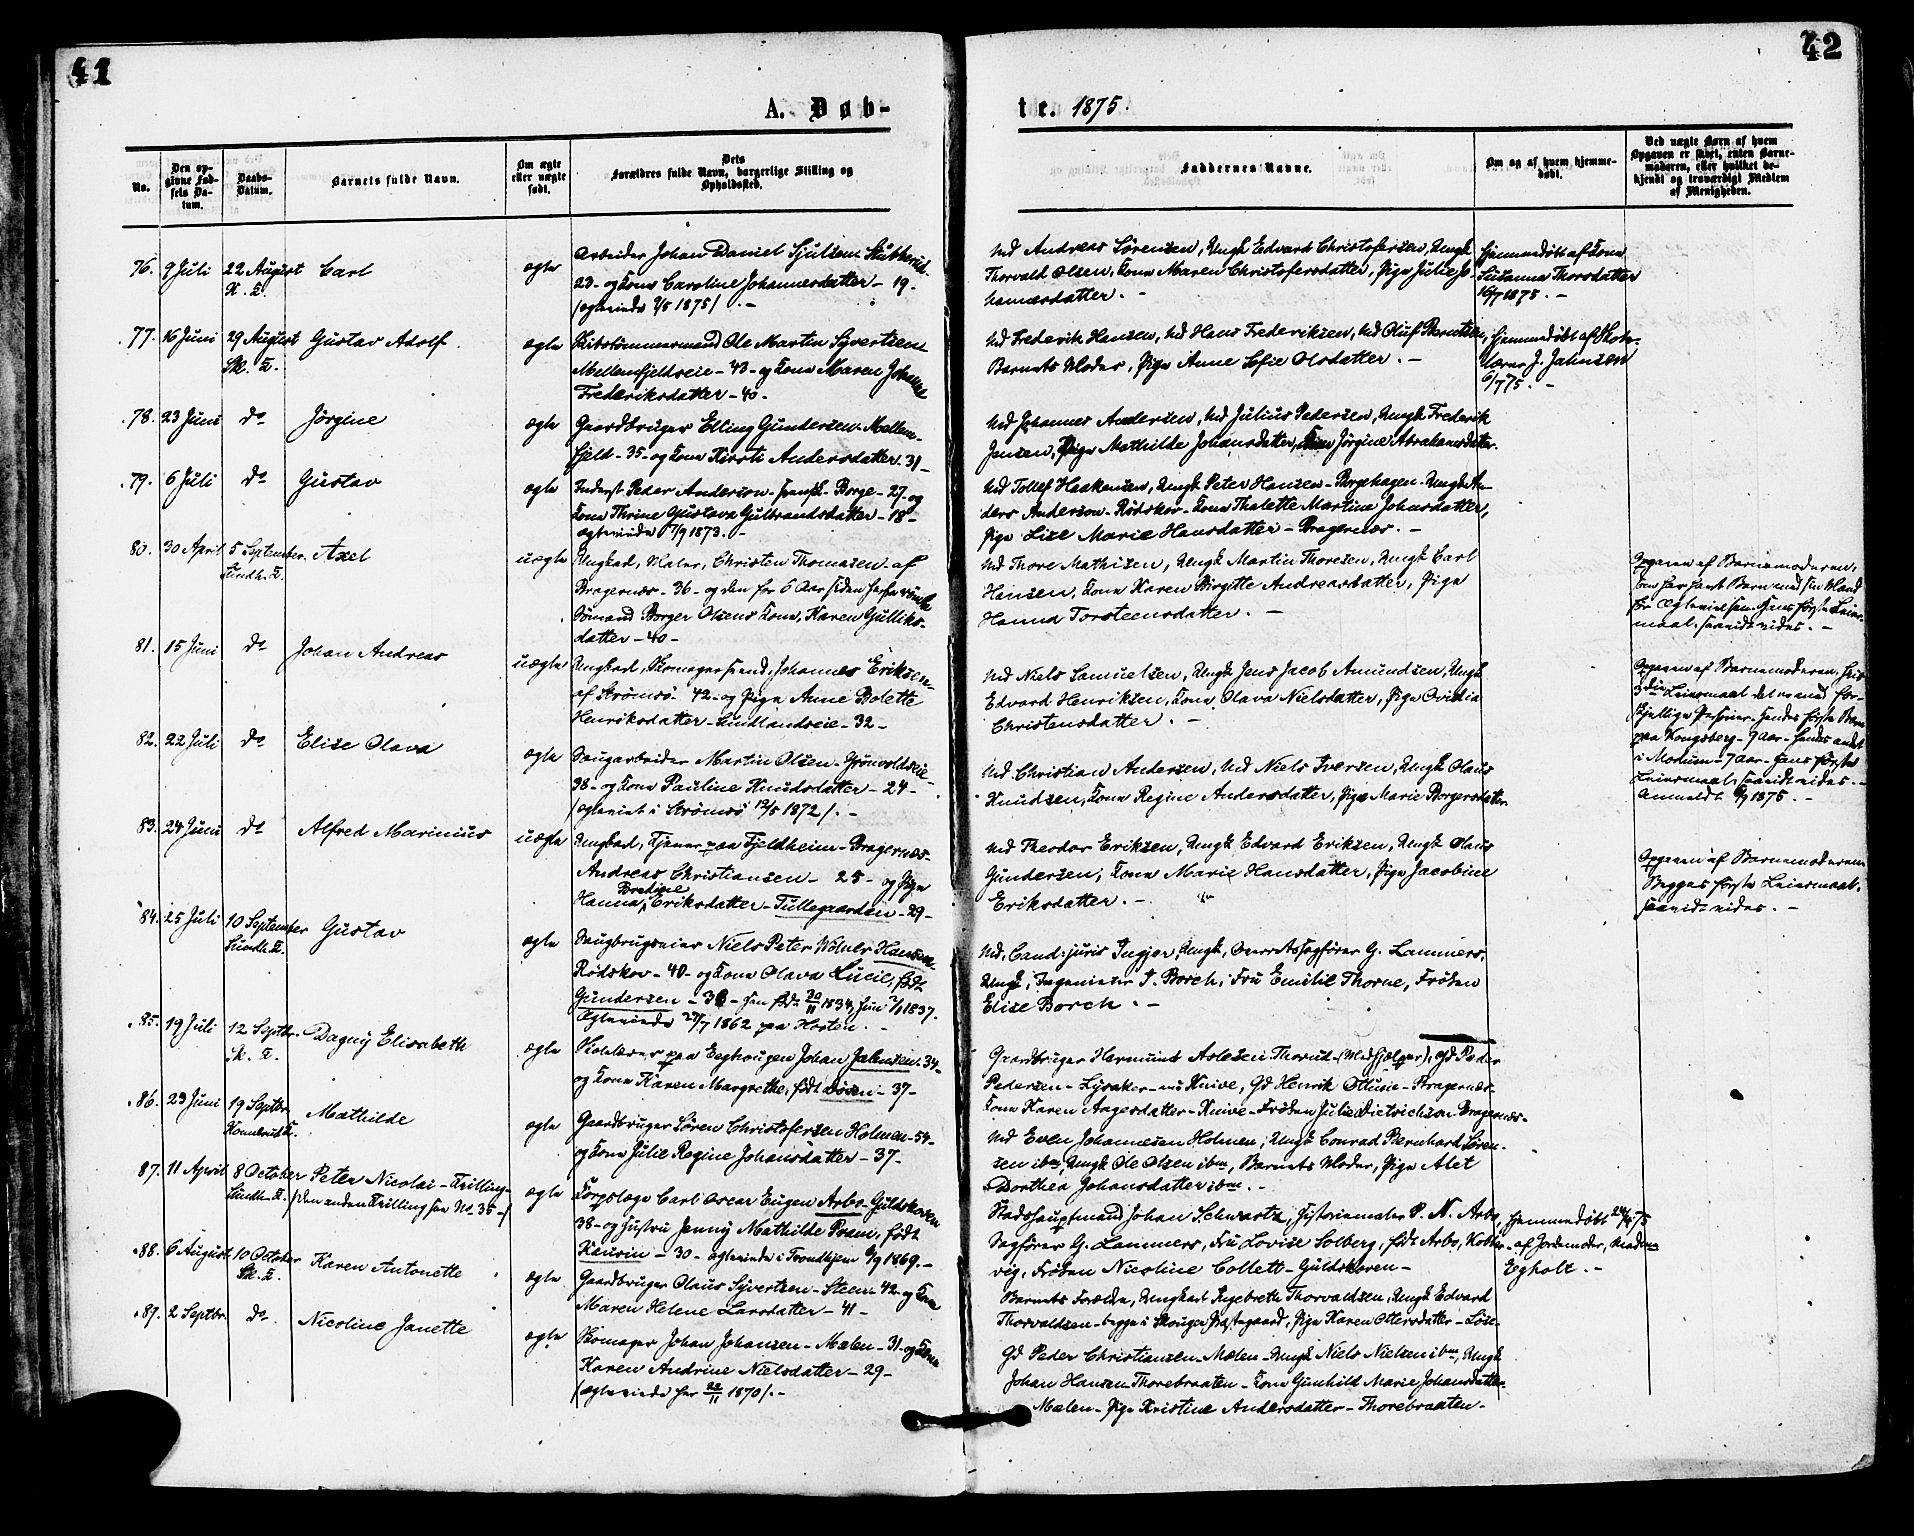 41
42
A. Døb-
te. 1875.
No.
Den op-
givne Fød-
sels Da-
tum.
Daabs-
Datum.
Barnets fulde Navn.
Om ægte
eller uægte
født.
Dets
Forældres fulde Navn, borgerlige Stilling og
Opholdssted.
Faddernes Navne.
Om og af hvem hjemme-
døbt.
Ved uægte Børn af hvem
Opgaven er skeet, enten Barne-
moderen, eller hvilket be-
kjendt og troværdigt Medlem
af Menigheden.
76. 9 Juli 22 August Carl ægte
K. T.
Arbeider Johan Daniel Sjulsen Stubberud
23 - og Kone Caroline Johannesdatter - 19 -
/ægteviede 2/5 1875/. -
Md Andreas Sørensen, Ungk Edvard Christofersen, Ungk
Thorvald Olsen, Kone Maren Christofersdatter, Pige Julie Jo-
hannesdatter. -
Hjemmedøbt af Kone
Susanna Thorsdatter
16/7 1875. -
77. 16 Juni 29 August Gustav Adolf ægte
Sk. T.
Skibstømmermand Ole Martin Syvertsen
Mellemfjeldseie - 43 - og Kone Maren
Frederiksdatter - 40 -
Md Frederik Hansen, Md Hans Frederiksen, Md Oluf Berntsen,
Barnets Moder, Pige Anne Sofie Olsdatter. -
Hjemmedøbt af Skole-
lærer J. Jahnsen
6/7 75. -
78. 23 Juni do Jørgine ægte
Gaardbruger Elling Gundersen - Mellem-
fjeld - 35 - og Kone Kirsti Andersdatter 31 -
Md Johannes Andersen, Md Julius Pedersen, Ungk Frederik
Jensen, Pige Mathilde Johansdatter, Kone Jørgine Abrahamsdatter.
79. 6 Juli do Gustav ægte
Inderst Peder Anderson - svensk - Borge - 27 - og
Kone Thrine Gustava Gulbrandsdatter - 18 -
ægteviede 1/9 1873. -
Md Tollef Haakensen, Ungk Peter Hansen - Borgehagen - Ungk An-
ders Anderson - Rødskov - Kone Thalette Martine Johnsdatter,
Pige Lise Marie Hansdatter - Bragernæs. -
80. 30 April 5 September Axel uægte
Sundh. T.
Ungkarl, Maler, Christen Thomasen af
Bragernæs - 36 - og den for 6 Aar siden
Sømand Borger Olsens Kone, Karen Gulliks-
datter - 40 -
Md Thore Mathisen, Ungk Martin Thoresen, Ungk Carl
Hansen, Kone Karen Birgitte Andreasdatter, Pige
Hanna Torsteensdatter. -
Opgaven af Barnemoderen,
som har havt Barn med sin Mand
før Ægtevielsen. Hans første Leier-
maal, saavidt vides. -
81. 15 Juni do Johan Andreas uægte
Ungkarl, Skomagersvend, Johannes Eriksen
af Strømsø - 42 - og Pige Anne Bolette
Henriksdatter - Sundlandseie - 32 -
Md Niels Samuelsen, Ungk Jens Jacob Amundsen, Ungk
Edvard Henriksen, Kone Olava Nielsdatter, Pige Ovidia
Christensdatter. -
Opgaven af Barnemoderen, hvis
3die Leiermaal det er med for-
skjellige Personer. Hendes første Barn
paa Kongsberg - 9 Aar - hendes andet
i Modum - 7 Aar - Hans første
Leiermaal, saavidt vides. -
Anmeldt 6/9 1875. -
82. 22 Juli do Elise Olava ægte
Saugarbeider Martin Olsen - Grønvoldseie -
38 - og Kone Pauline Knudsdatter - 24 -
/ægteviet i Strømsø 12/5 1872/. -
Md Christian Andersen, Md Niels Iversen, Ungk Olaus
Knudsen, Kone Regine Andersdatter, Pige Marie Borgersdatter
83. 24 Juni do Alfred Marinius uægte
Ungkarl, Tjener paa Fjeldheim - Bragernæs -
Andreas Christiansen - 25 - og Pige
Hanna Bredine Eriksdatter - Tullegaarden - 29 -
Md Theodor Eriksen, Ungk Edvard Eriksen, Ungk Olaus
Gundersen, Kone Marie Hansdatter, Pige Jacobine
Eriksdatter. -
Opgaven af Barnemoderen
Begges første Leiermaal,
saavidt vides. -
84. 25 Juli 10 September Gustav ægte
Sundh. T.
Saugbrugseier Niels Peter Wølner Hansen
Rødskov - 40 - og Kone Olava Lucie, født
Gundersen - 38 - Han født 20/11 1834, Hun 7/1 1837.
Ægteviede 27/7 1862 paa Horten. -
Md, Cand: juris Ingjer, Ungk, Overretssagfører G. Lammers,
Ungk, Ingeniør J. Borch, Fru Emilie Thorne, Frøken
Elise Borch. -
85. 19 Juli 12 Septbr. Dagny Elisabeth ægte
Sk. T.
Skolelærer paa Eeghougen Johan Jahnsen - 34 -
og Kone Karen Margrethe, født - 37 -
Gaardbruger Hermund Aslesen Thorud - (Medhjælper), Gd Peder
Pedersen - Lysaker - nu Knive, Gd Henrik - Bragernæs -
Kone Karen Aagesdatter - Knive - Frøken Julie Dietrichson - Bragernæs -
86. 23 Juni 19 Septbr. Mathilde ægte
Konnerud T.
Gaardbruger Søren Christofersen Holmen - 54 -
og Kone Julie Regine Johansdatter - 37 -
Md Even Johannesen Holmen, Ungk Conrad Bernhard Søren-
sen ibm, Ungk Ole Olsen ibm, Barnets Moder, Pige Alet
Dorthea Johansdatter ibm. -
87. 11 April 8 October Peter Nicolai - Trilling - ægte
Sundh. T. /den anden Trilling see No 35 -/
Korpslæge Carl Oscar Eugen Arbo - Guldskoven
38 - og Hustru Jenny Mathilde Pram, født
Kaurin - 30 - ægteviede i Trondhjem 6/9 1869. -
Stadshauptmand Johan Schwartz, Historiemaler P. N. Arbo,
Sagfører G. Lammers, Fru Lovise Solberg, født Arbo,
vig, Frøken Nicoline Collett - Guldskoven -
Hjemmedøbt 24/4 75
af Jordemoder, Madame
Egholt. -
88. 6 August 10 October Karen Antonette ægte
Sk. T.
Gaardbruger Olaus Syvertsen - Steen - 42 - og Kone
Maren Helene Larsdatter - 41 -
Barnets Forældre, Ungkarl Ingebreth Thorvaldsen, Ungk Edvard
Thorvaldsen - begge i Skouger Præstegaard, Pige Karen Ottersdatter -
87. 2 Septbr. do. Nicoline Janette ægte
Skomager Johan Johansen - Mælen - 31 - og Kone
Karen Andrine Nielsdatter - 29 -
/ægteviede her 22/11 1870/. -
Gd Peder Christiansen - Mælen - Ungk Niels Nielsen ibm, Ungk
Johan Hansen - Thorebraaten - Kone Gunhild Marie Johansdatter
Mælen - Pige Kristine Andersdatter - Thorebraaten -